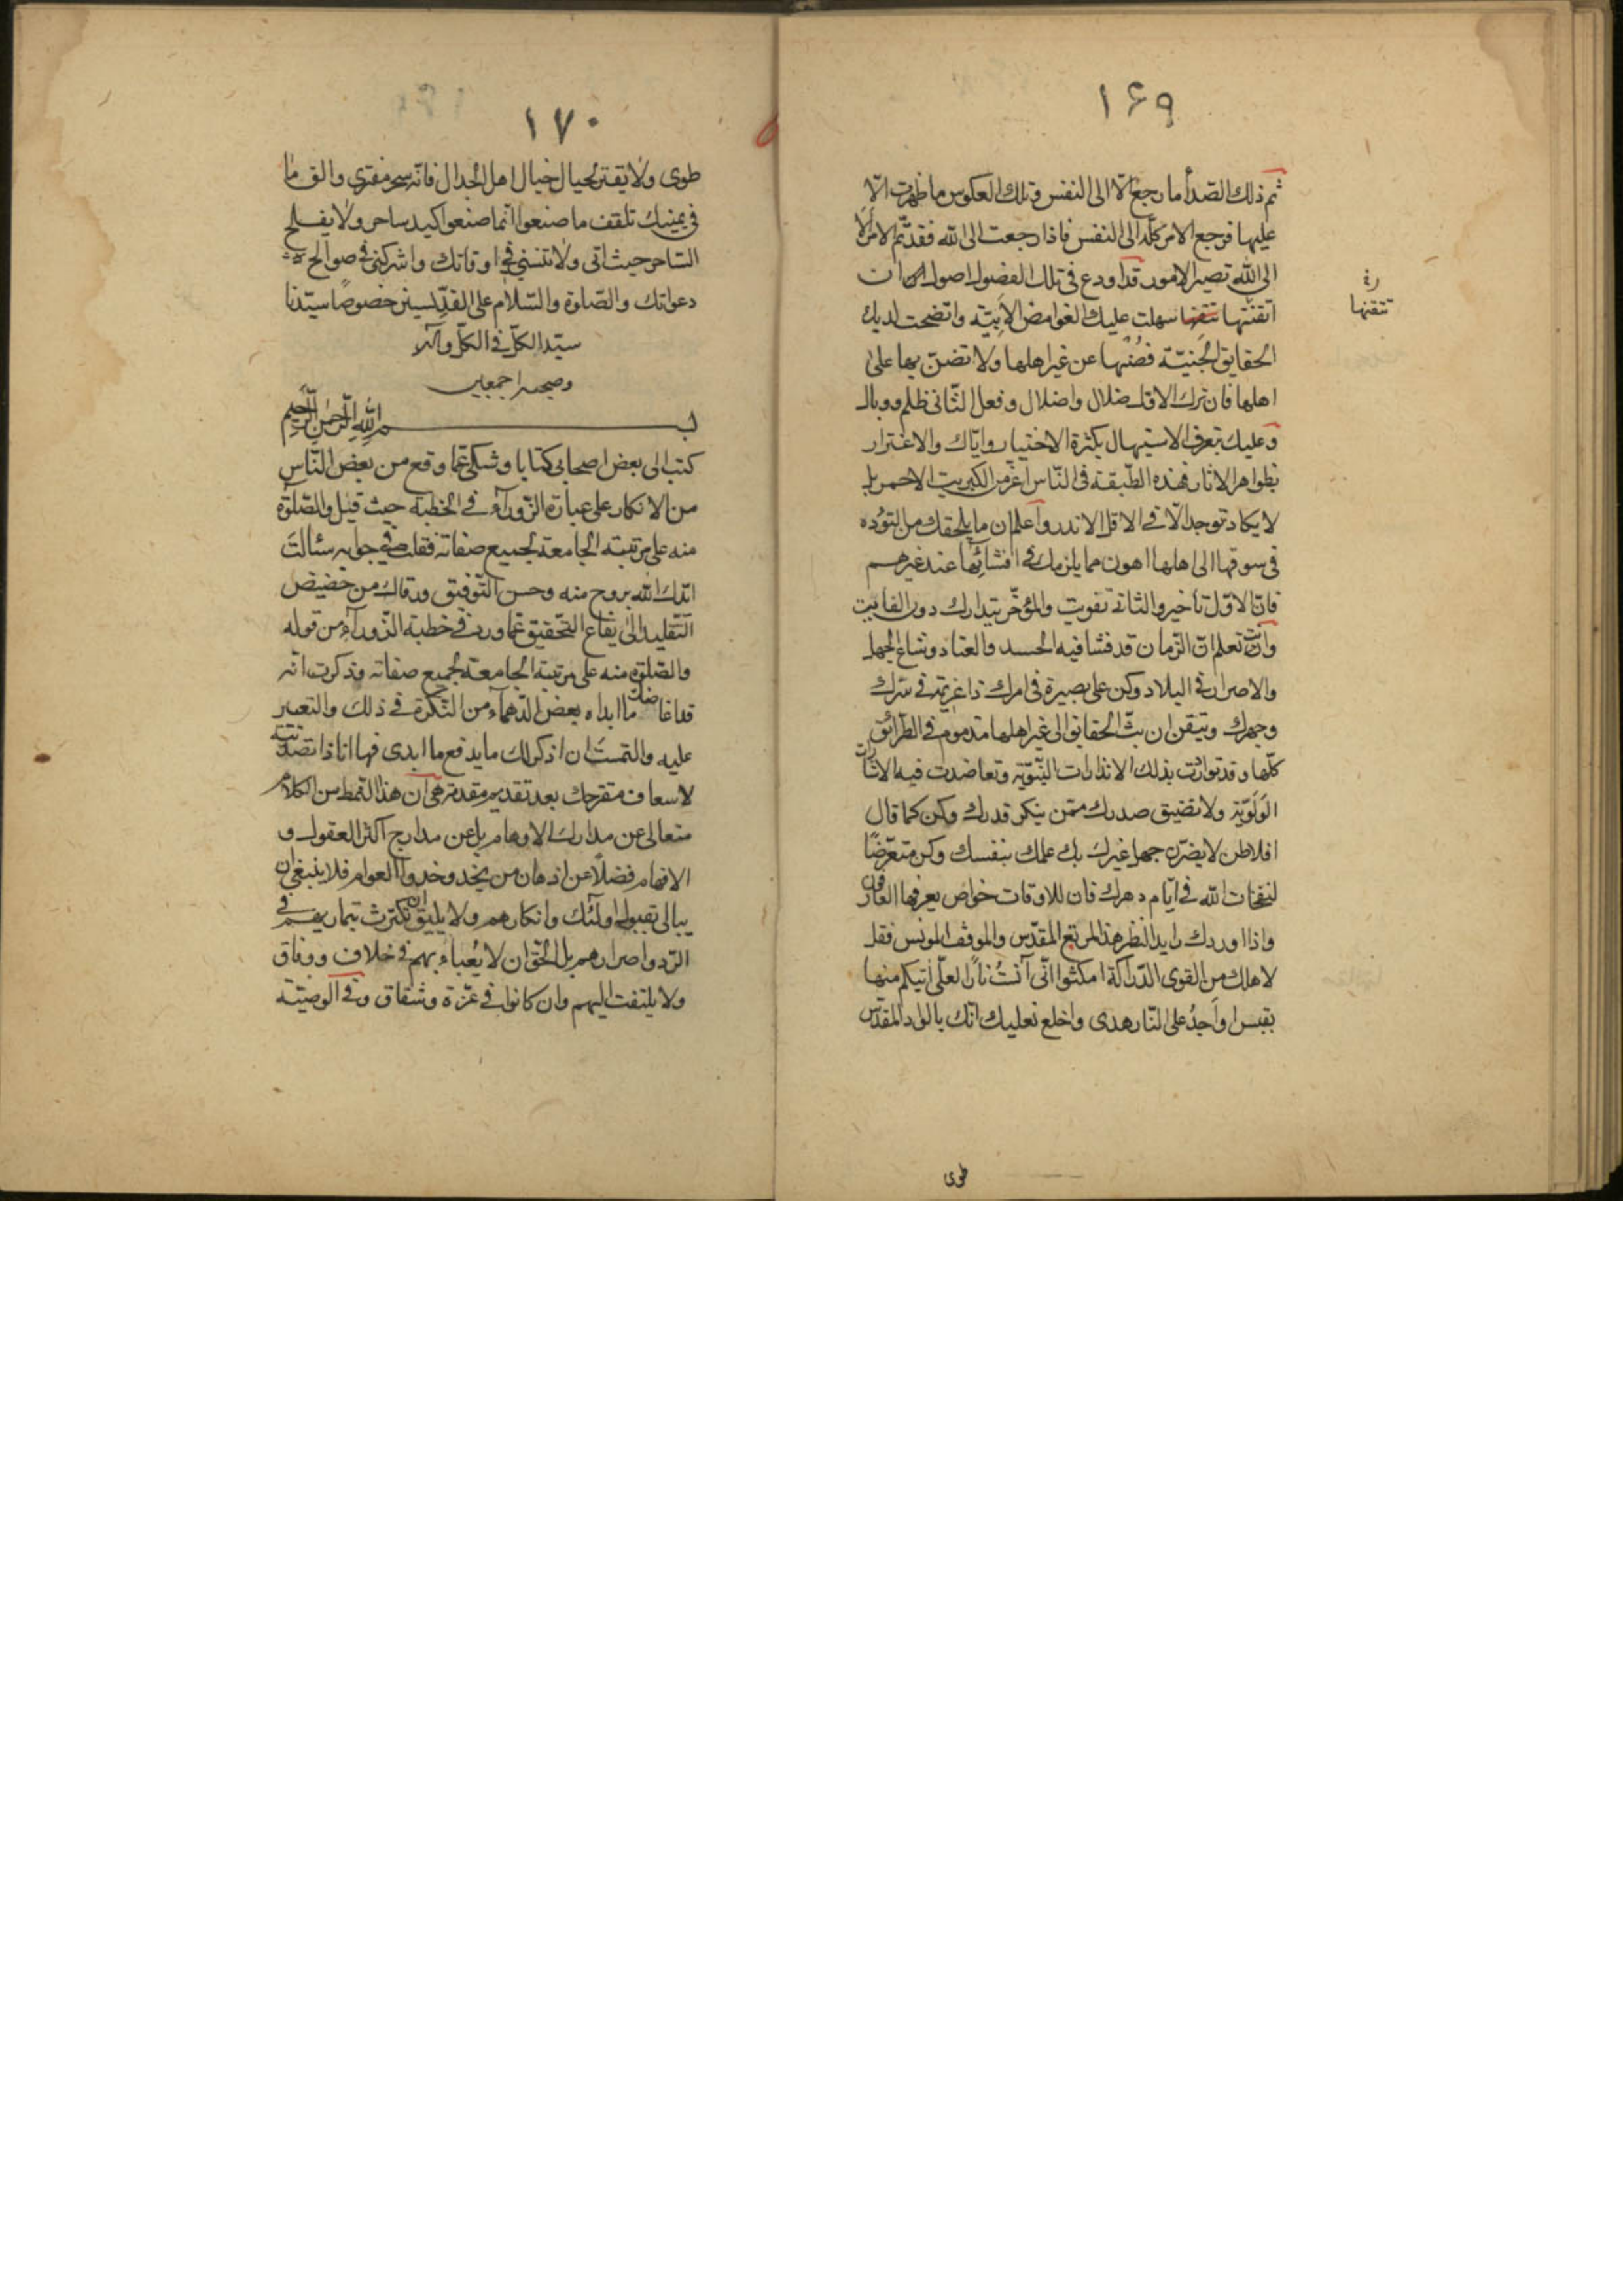 ١۶٩
ثم ذلك الصدأ ما رجع الّا الى النفس وتلك العكوس ما ظهرت الّا
عليها فرجع الامر كلّه الى النفس فاذا رجعت الى الله فقد تم الامر الا
الى الله تصير الامور قد اودع فى تلك الفصول اصول ان
اتقنتها تتقنها سهلت عليك الغوامض الابيّة واتضحت لديك
تتقنها
الحقايق الجنيّة فصُنْها عن غير اهلها ولا تضنّ بها على
اهلها فان ترك الاول ضلال واضلال وفعل الثانى ظلم ووبال
وعليك بتعرف الاستيهال بكثرة الاختيار وايّاك والاغترار
بظواهر الاثار فهذه الطّبقة فى النّاس اعزّ من الكبريت الاحمر بل
لا يكاد توجد الّا فى الاقل الاندر واعلم ان ما يلحقك من التؤده
فى سوقها الى اهلها اهون مما يلزمك فى افشائها عند غيرهم
فانّ الاوّل تاخير والثانى تفويت والمؤخّر يتدارك دون الفايت
وانت تعلم انّ الزّمان قد فشا فيه الحسد والعناد وشاع الجهل
والاصرار فى البلاد وكن على بصيرة فى امرك ذا عزيمة فى سرّك
وجهرك وتيقن ان بثّ الحقايق الى غير اهلها مذموم فى الطرائق
كلّها وقد تواترت بذلك الانذارات النّبويّة وتعاضدت فيه الاشارات
الولويّة ولا تضيق صدرك ممّن ينكر قدرك وكن كما قال
افلاطن لا يضرّك جهل غيرك بك علمك بنفسك وكن متعرّضًا
لنفحات الله فى ايّام دهرك فان للاوقات خواص يعرفها العارفون
واذا اوردك رايد النظر هذا المربع المقدّس والموقف المونس فقل
لاهلك من القوى الدّراكة امكثوا انّى آنستُ نارًا لعلّى آتيكم منها
بقبس او اجدُ على النّار هدى واخلع نعليك انّك بالواد المقدّس
طوى
١٧٠
طوى ولا يغتر بحيال خيال اهل الجدال فانّه سحر مفترى والق ما
فى يمينك تلقف ما صنعوا انّما صنعوا كيد ساحر ولا يفلح
السّاحر حيث اتى ولا تنسنى فى اوقاتك واشركنى فى صوالح
دعواتك والصّلوة والسّلام على القدّيسين خصوصًا سيّدنا
سيّد الكلّ فى الكلّ وآله
وصحبه اجمعين
بسم الله الرّحمن الرّحيم
كتب الى بعض اصحابى كتابا وشكى عمّا وقع من بعض النّاس
من الانكار على عبارة الزّوراء فى الخطبة حيث قيل والصّلوة
منه على مرتبته الجامعة لجميع صفاته فقلت فى جوابه سئالتَ
ايّدك الله بروح منه وحسن التّوفيق ورقاك من حضيض
التّقليد الى يفاع التّحقيق عمّا ورد فى خطبة الزّوراء من قوله
والصّلوة منه على مرتبته الجامعة لجميع صفاته وذكرت انّه
قد اغاضك ما ابداه بعض الدّهماء من النّكرة فى ذلك والتعبير
عليه والتمستَ ان اذكر لك ما يدفع ما ابدى فها انا ذا تصدّيت
لاسعاف مقترحك بعد تقديم مقدمة هى ان هذا النّمط من الكلام
متعالى عن مدارك الاوهام بل عن مدارج اكثر العقول و
الافهام فضلًا عن اذهان من يحذو حذو العوام فلا ينبغى ان
يبالى بقبول اولئك وانكارهم ولا يليق ان يكترث بتماريهم فى
الرّد واصرارهم بل الحقّ ان لا يُعباء بهم فى خلاف ووفاق
ولا يلتفت اليهم وان كانوا فى عزّة وشقاق وفى الوصيّة